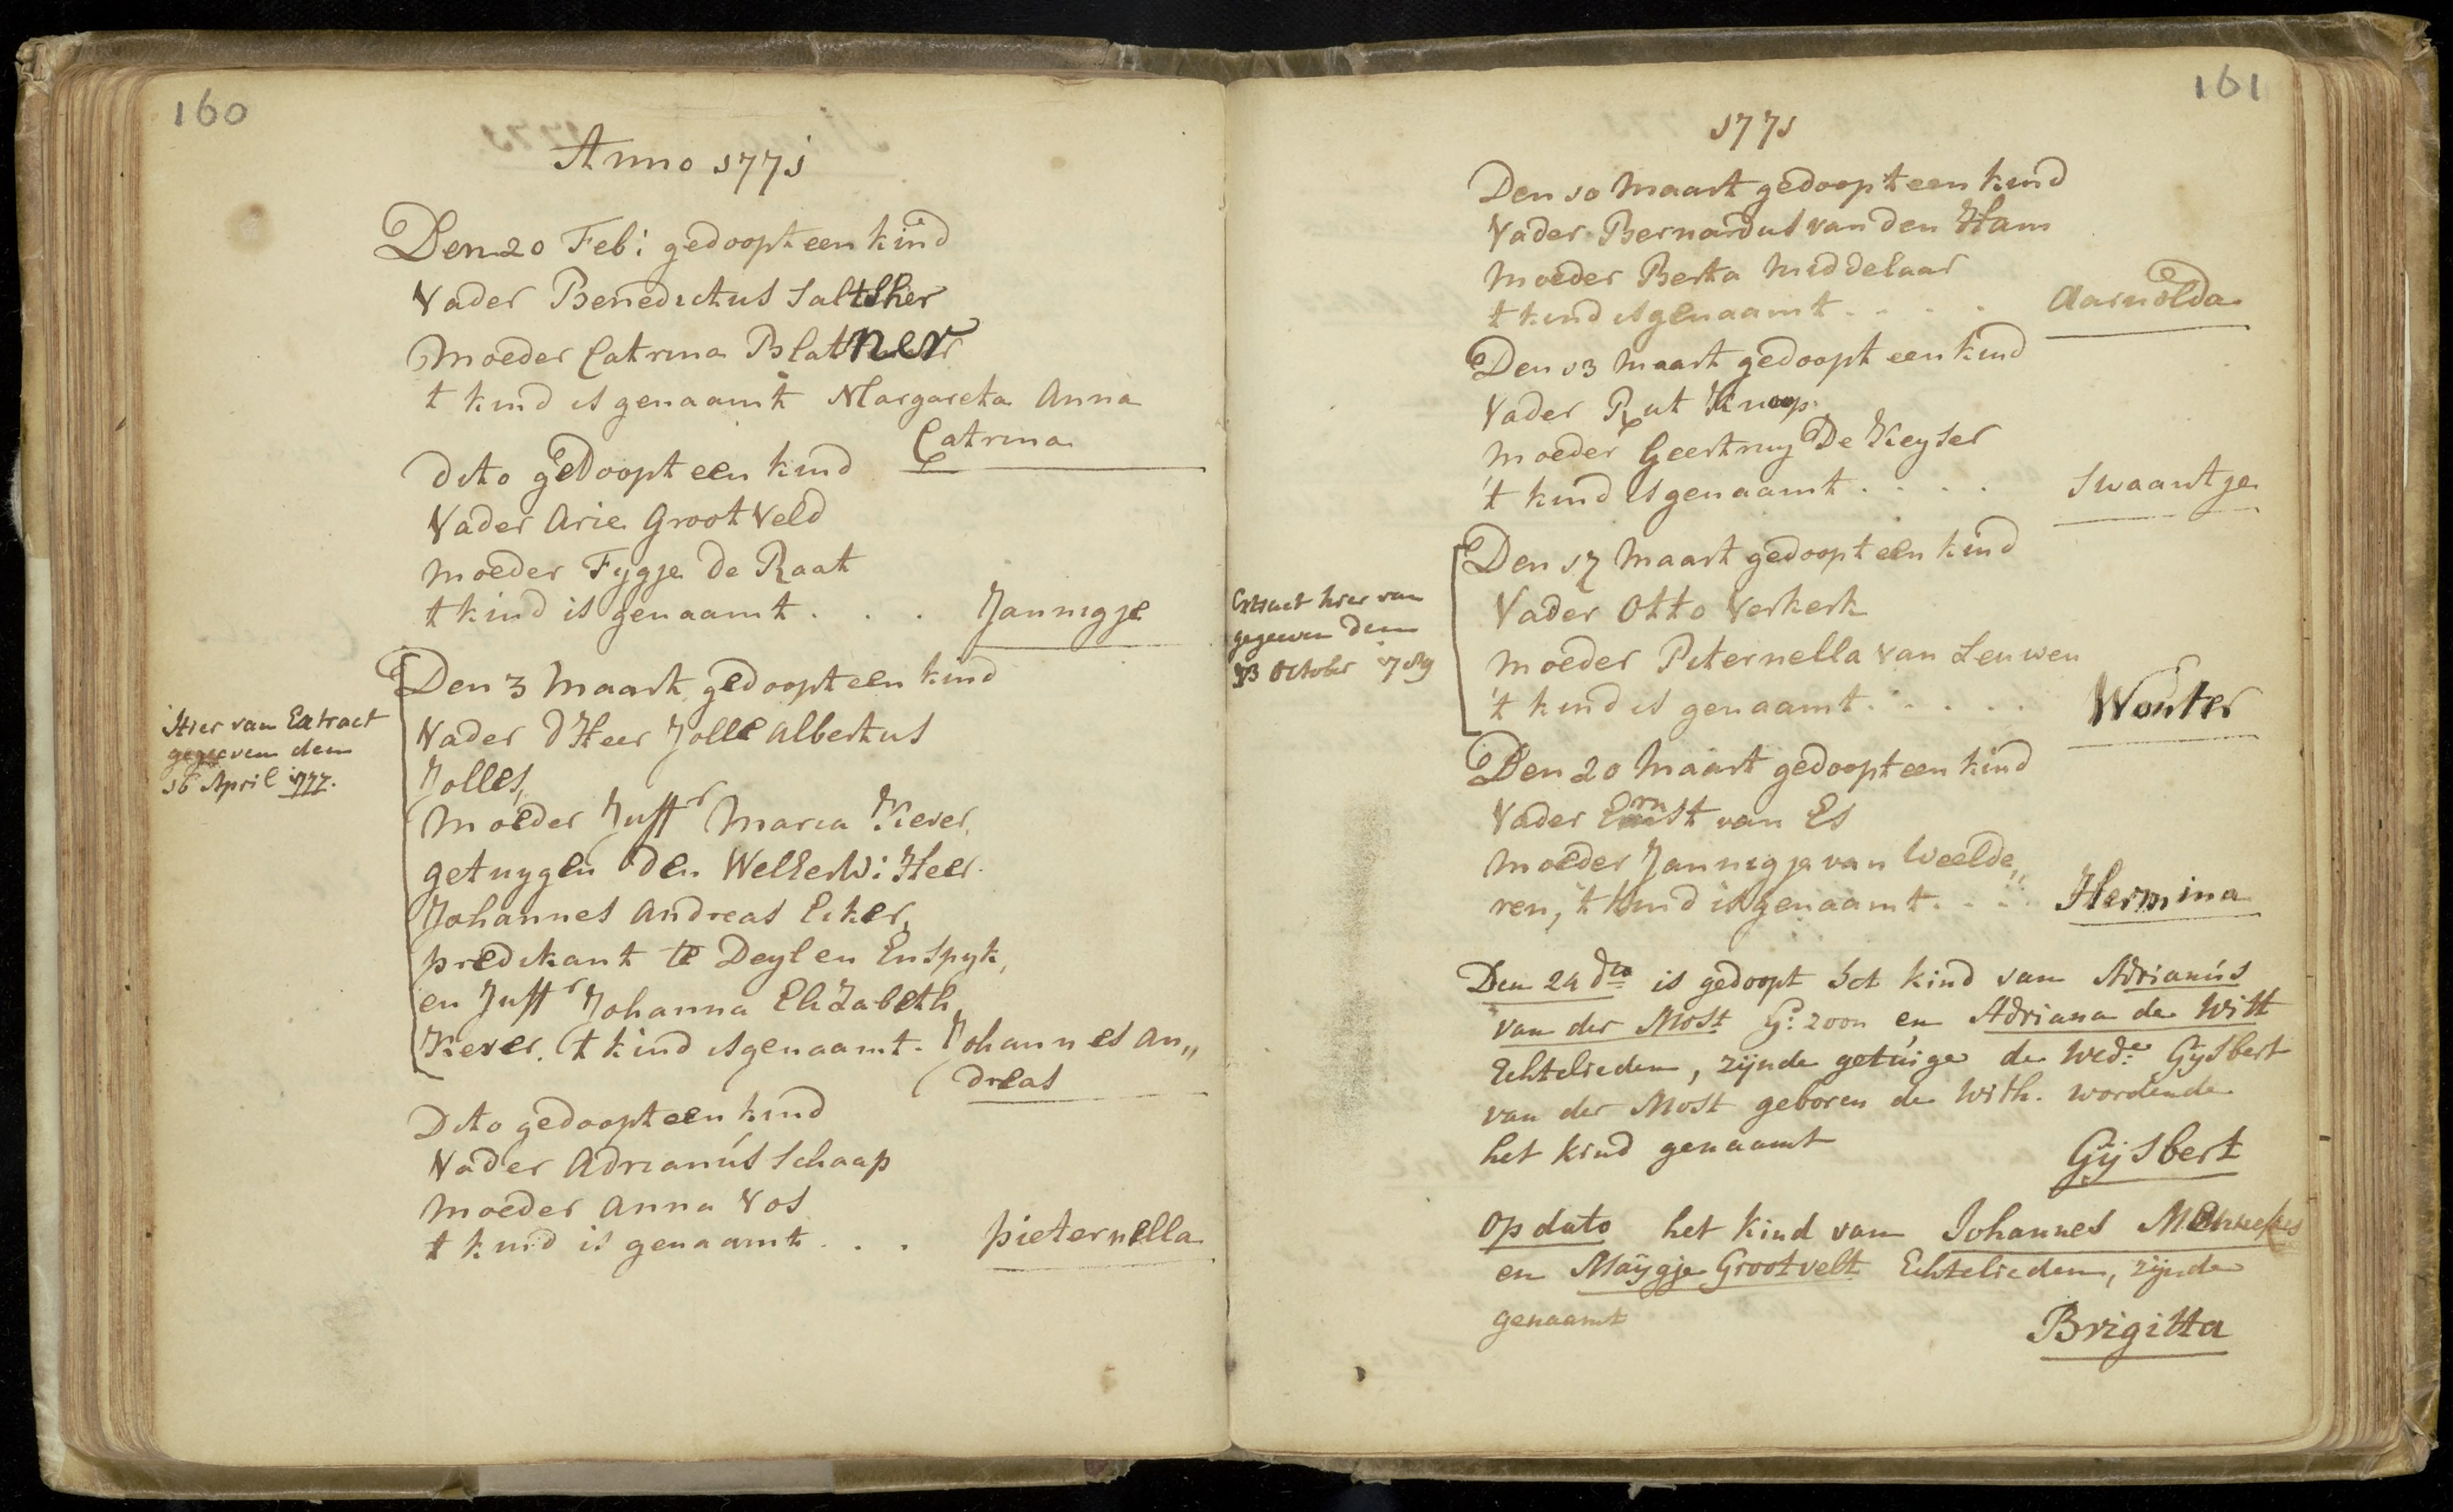 160
Anno 1771
Den 20 Feb: gedoopt een kind
Vader Benedictus Saltsher
Moeder Catrina Blatner
t kind is genaamt Margareta Anna
Catrina
dito gedoopt een kind
Vader Arie Groot Veld
moeder Fygje de Raat
t kind is genaamt . . . Jannigje
Den 3 Maart gedoopt een kind
Hier van Extract
gegeeven den
16 April 1777.
Vader d Heer Jolle Albertus
Jolles,
Moeder Juffr Maria Kever,
getuygen den WelEerW: Heer
Johannes Andreas Eiker,
predikant te Deyl en Enspyk,
en Juffr Johanna Elizabeth
Kever. t kind is genaamt. Johannes An„
dreas
Dito gedoopt een kind
Vader Adrianús Schaap
Moeder Anna Vos
t kind is genaamt . . . pieternella
161
1771
Den 10 Maart gedoopt een kind
Vader Bernardus van den Ham
Moeder Berta Middelaar
t kind is genaamt . . . . Aarnolda
Den 13 Maart gedoopt een kind
Vader Rut Knoop
moeder Geertruy De Keyser
't kind is genaamt . . . . Swaantje
Den 17 Maart gedoopt een kind
Extract hier van
gegeeven den
13 October 1789
Vader Otto Verkerk
moeder Piternella van Leuwen
't kind is genaamt . . . . . Wouter
Den 20 Maart gedoopt een kind
Vader Ernst van Es
moeder Jannigje van Weelde„
ren, 't kind is genaamt. . . . Hermina
Den 24 dto is gedoopt het kind van Adrianús
van der Most G: zoon en Adriana de Witt
Echtelieden, zijnde getúige de Wede: Gijsbert
van der Most geboren de With. wordende
het kind genaamt Gijsbert
Op dato het kind van Johannes
en Maÿgje Grootvelt Echtelieden, zijnde
genaamt Brigitta